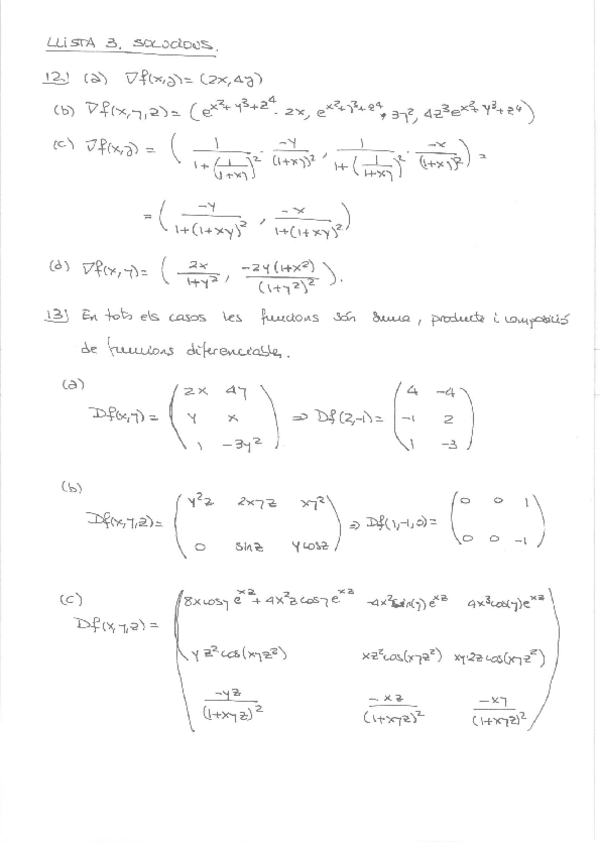 LLISTA 3. SOLUCIONS.
12.) (a) ∇f(x,y) = (2x, 4y)
(b) ∇f(x,y,z) = (e^{x²+y³+z⁴} · 2x, e^{x²+y³+z⁴} · 3y², 4z³e^{x²+y³+z⁴})
(c) ∇f(x,y) = ( 1/(1+(1/(1+xy))²) · -y/(1+xy)², 1/(1+(1/(1+xy))²) · -x/(1+xy)² ) =
= ( -y/(1+(1+xy)²), -x/(1+(1+xy)²) )
(d) ∇f(x,y) = ( 2x/(1+y²), -2y(1+x²)/(1+y²)² ).
13) En tots els casos les funcions són suma, producte i composició
de funcions diferenciables.
(a)
Df(x,y) = ( 2x 4y ; y x ; 1 -3y² ) ⇒ Df(2,-1) = ( 4 -4 ; -1 2 ; 1 -3 )
(b)
Df(x,y,z) = ( y²z 2xyz xy² ; 0 sinz ycosz ) ⇒ Df(1,-1,0) = ( 0 0 1 ; 0 0 -1 )
(c)
Df(x,y,z) = ( 8xcosy e^{xz} + 4x²zcosy e^{xz} -4x²sin(y)e^{xz} 4x³cos(y)e^{xz} ; yz²cos(xyz²) xz²cos(xyz²) xy·2zcos(xyz²) ; -yz/(1+xyz)² -xz/(1+xyz)² -xy/(1+xyz)² )